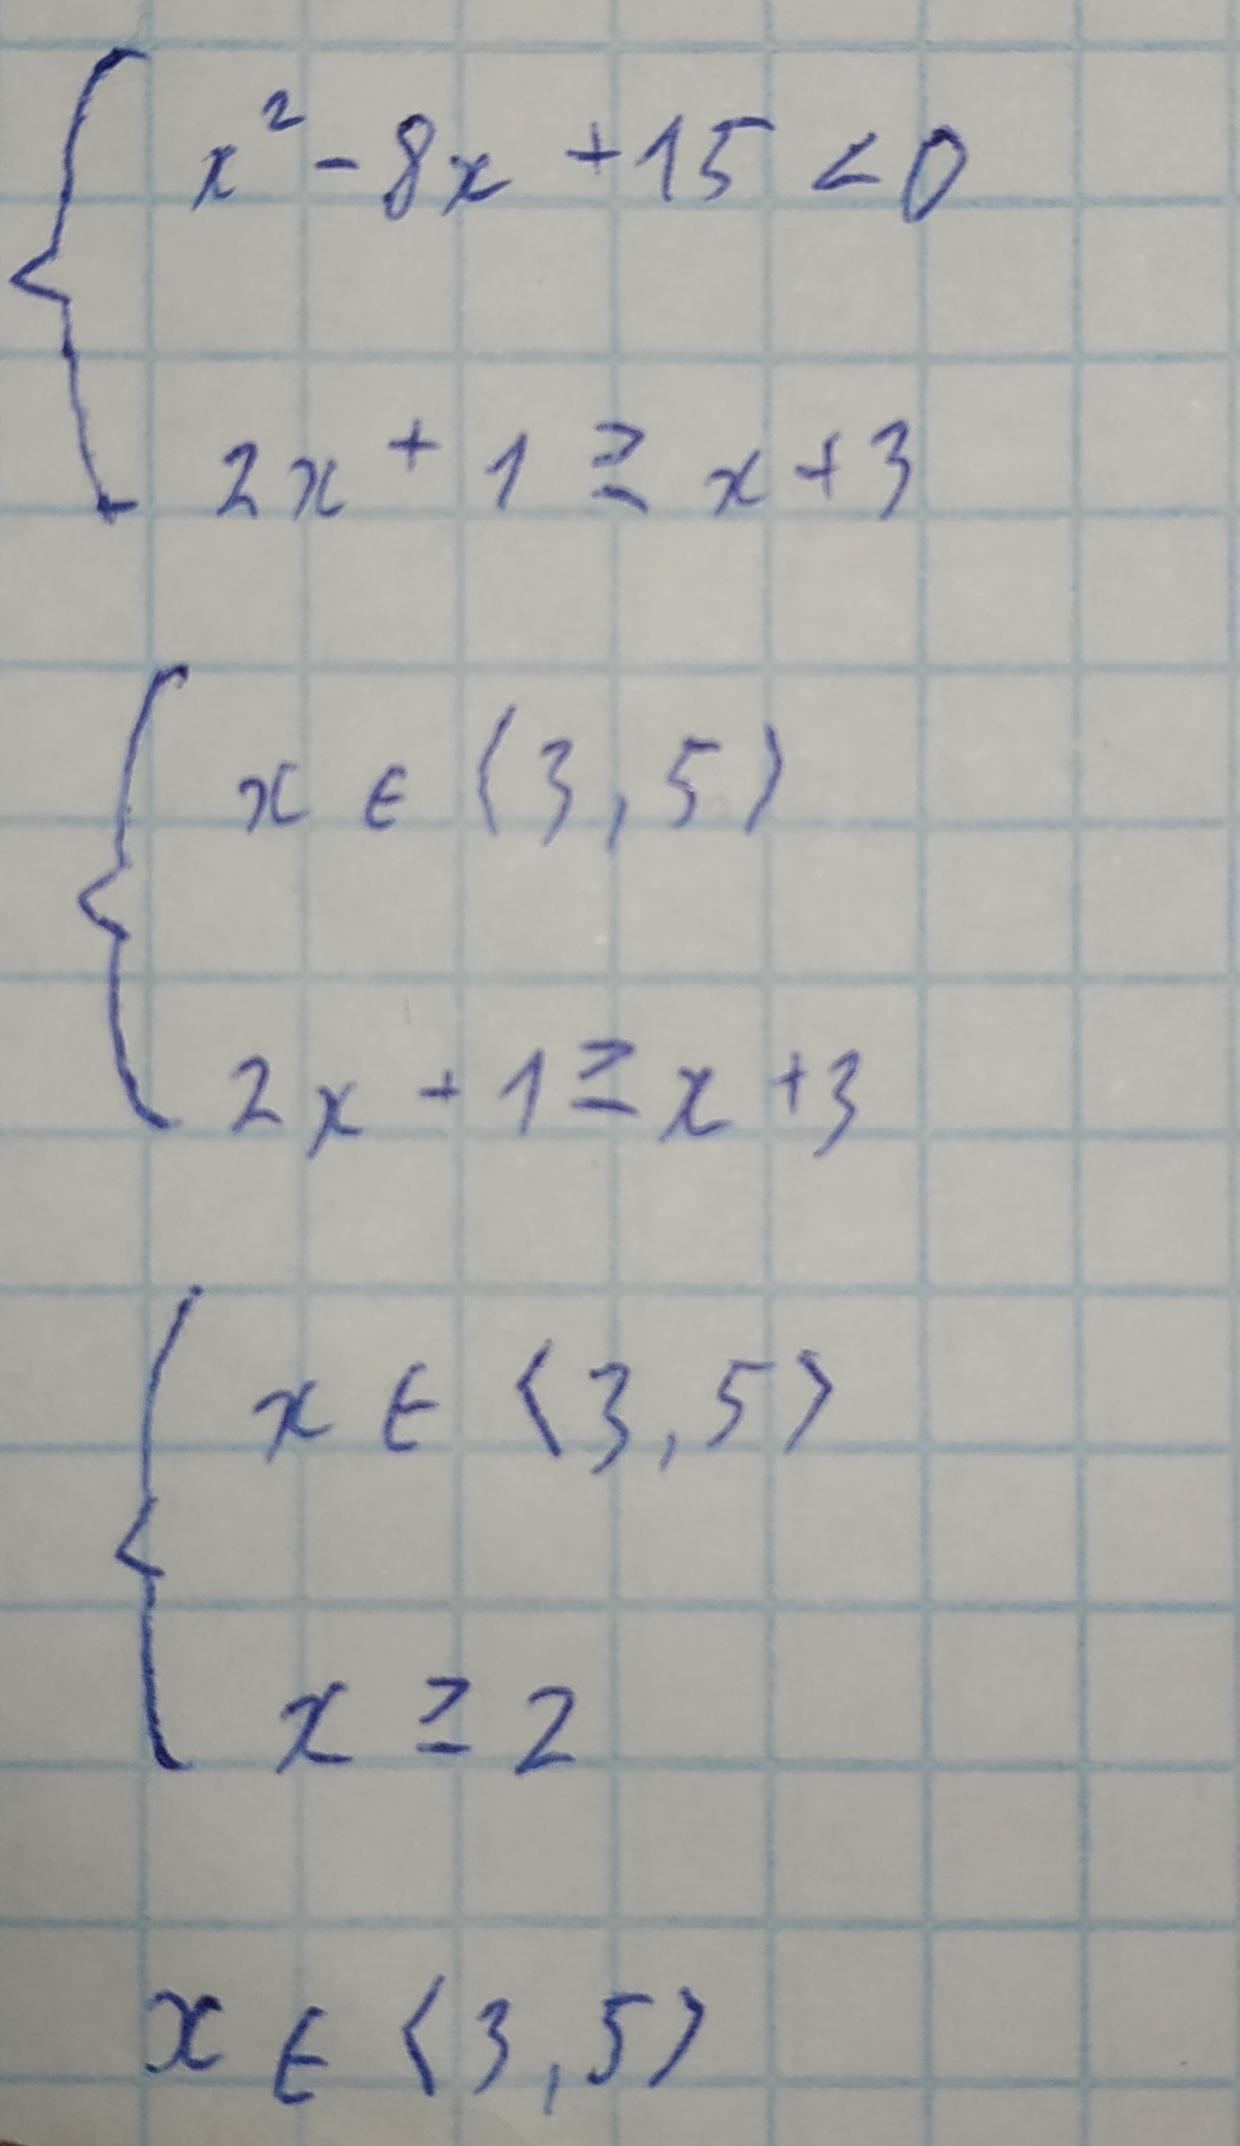 x² - 8x + 15 < 0
2x + 1 ≥ x + 3
x ∈ ⟨3, 5⟩
2x + 1 ≥ x + 3
x ∈ ⟨3, 5⟩
x ≥ 2
x ∈ ⟨3, 5⟩